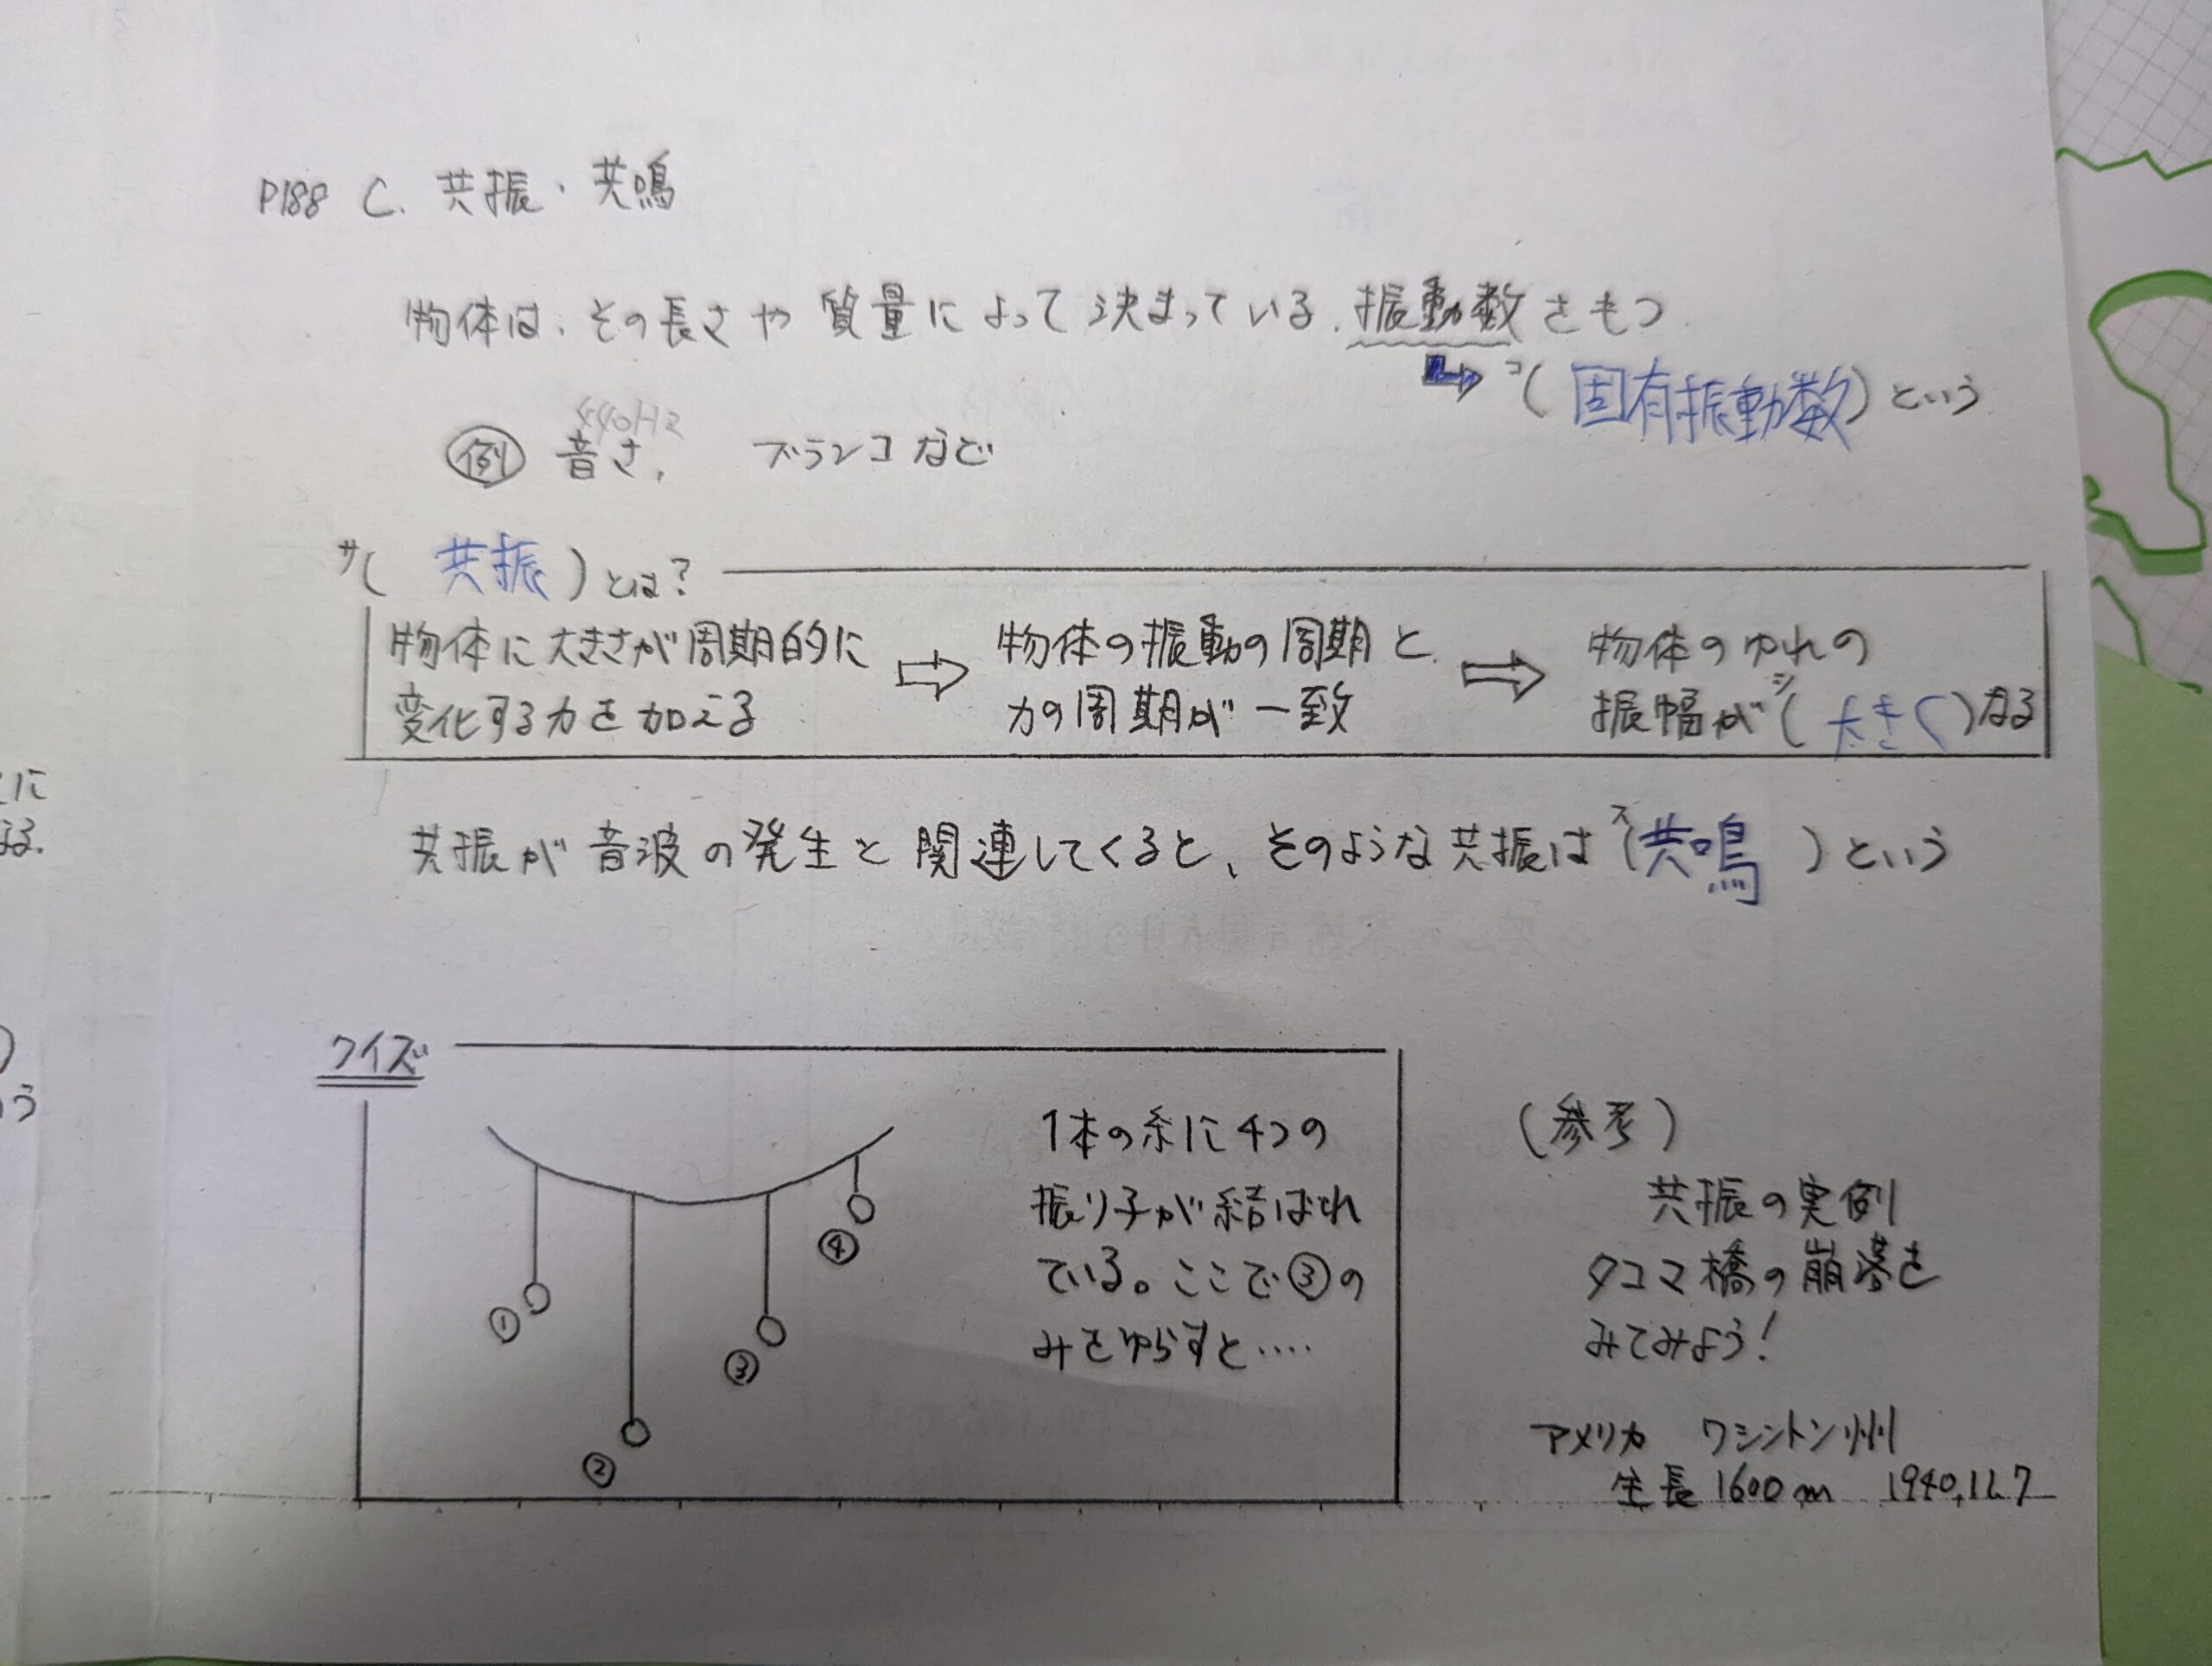 P188 C. 共振・共鳴
物体は、その長さや質量によって決まっている、振動数をもつ
コ(固有振動数)という
440Hz
例 音さ、 ブランコなど
サ(共振)とは?
物体に大きさが周期的に
変化する力を加える
⇨
物体の振動の周期と
力の周期が一致
⇨
物体のゆれの
振幅がシ(大きく)なる
共振が音波の発生と関連してくると、そのような共振はス(共鳴)という
クイズ
①
②
③
④
1本の糸に4つの
振り子が結ばれ
ている。ここで③の
みをゆらすと‥‥
(参考)
共振の実例
タコマ橋の崩落を
みてみよう!
アメリカ ワシントン州
全長1600m 1940.11.7
に
る.
う